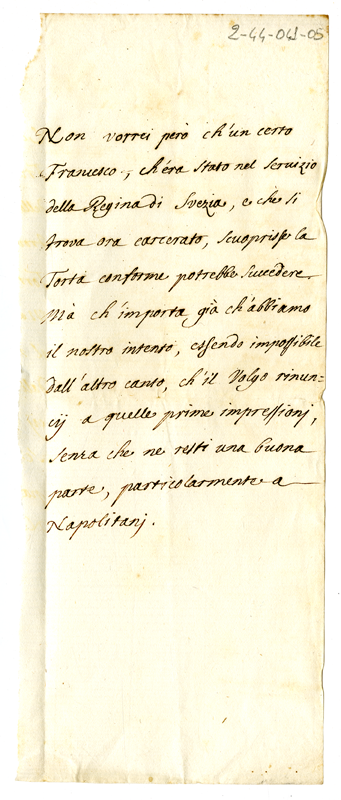 2-44-041-05
Non vorrei però ch'un certo
Francesco, ch'éra stato nel servizio
della Regina di Svezia, e che si
trova ora carcerato, scuoprisse la
Torta conforme potrebbe succedere
Mà ch'importa già ch'abbiamo
il nostro intento, essendo impossibile
dall'altro canto, ch'il Volgo rinun=
cij a quelle prime impressionj,
senza che ne resti una buona
parte, particolarmente a
Napolitanj.